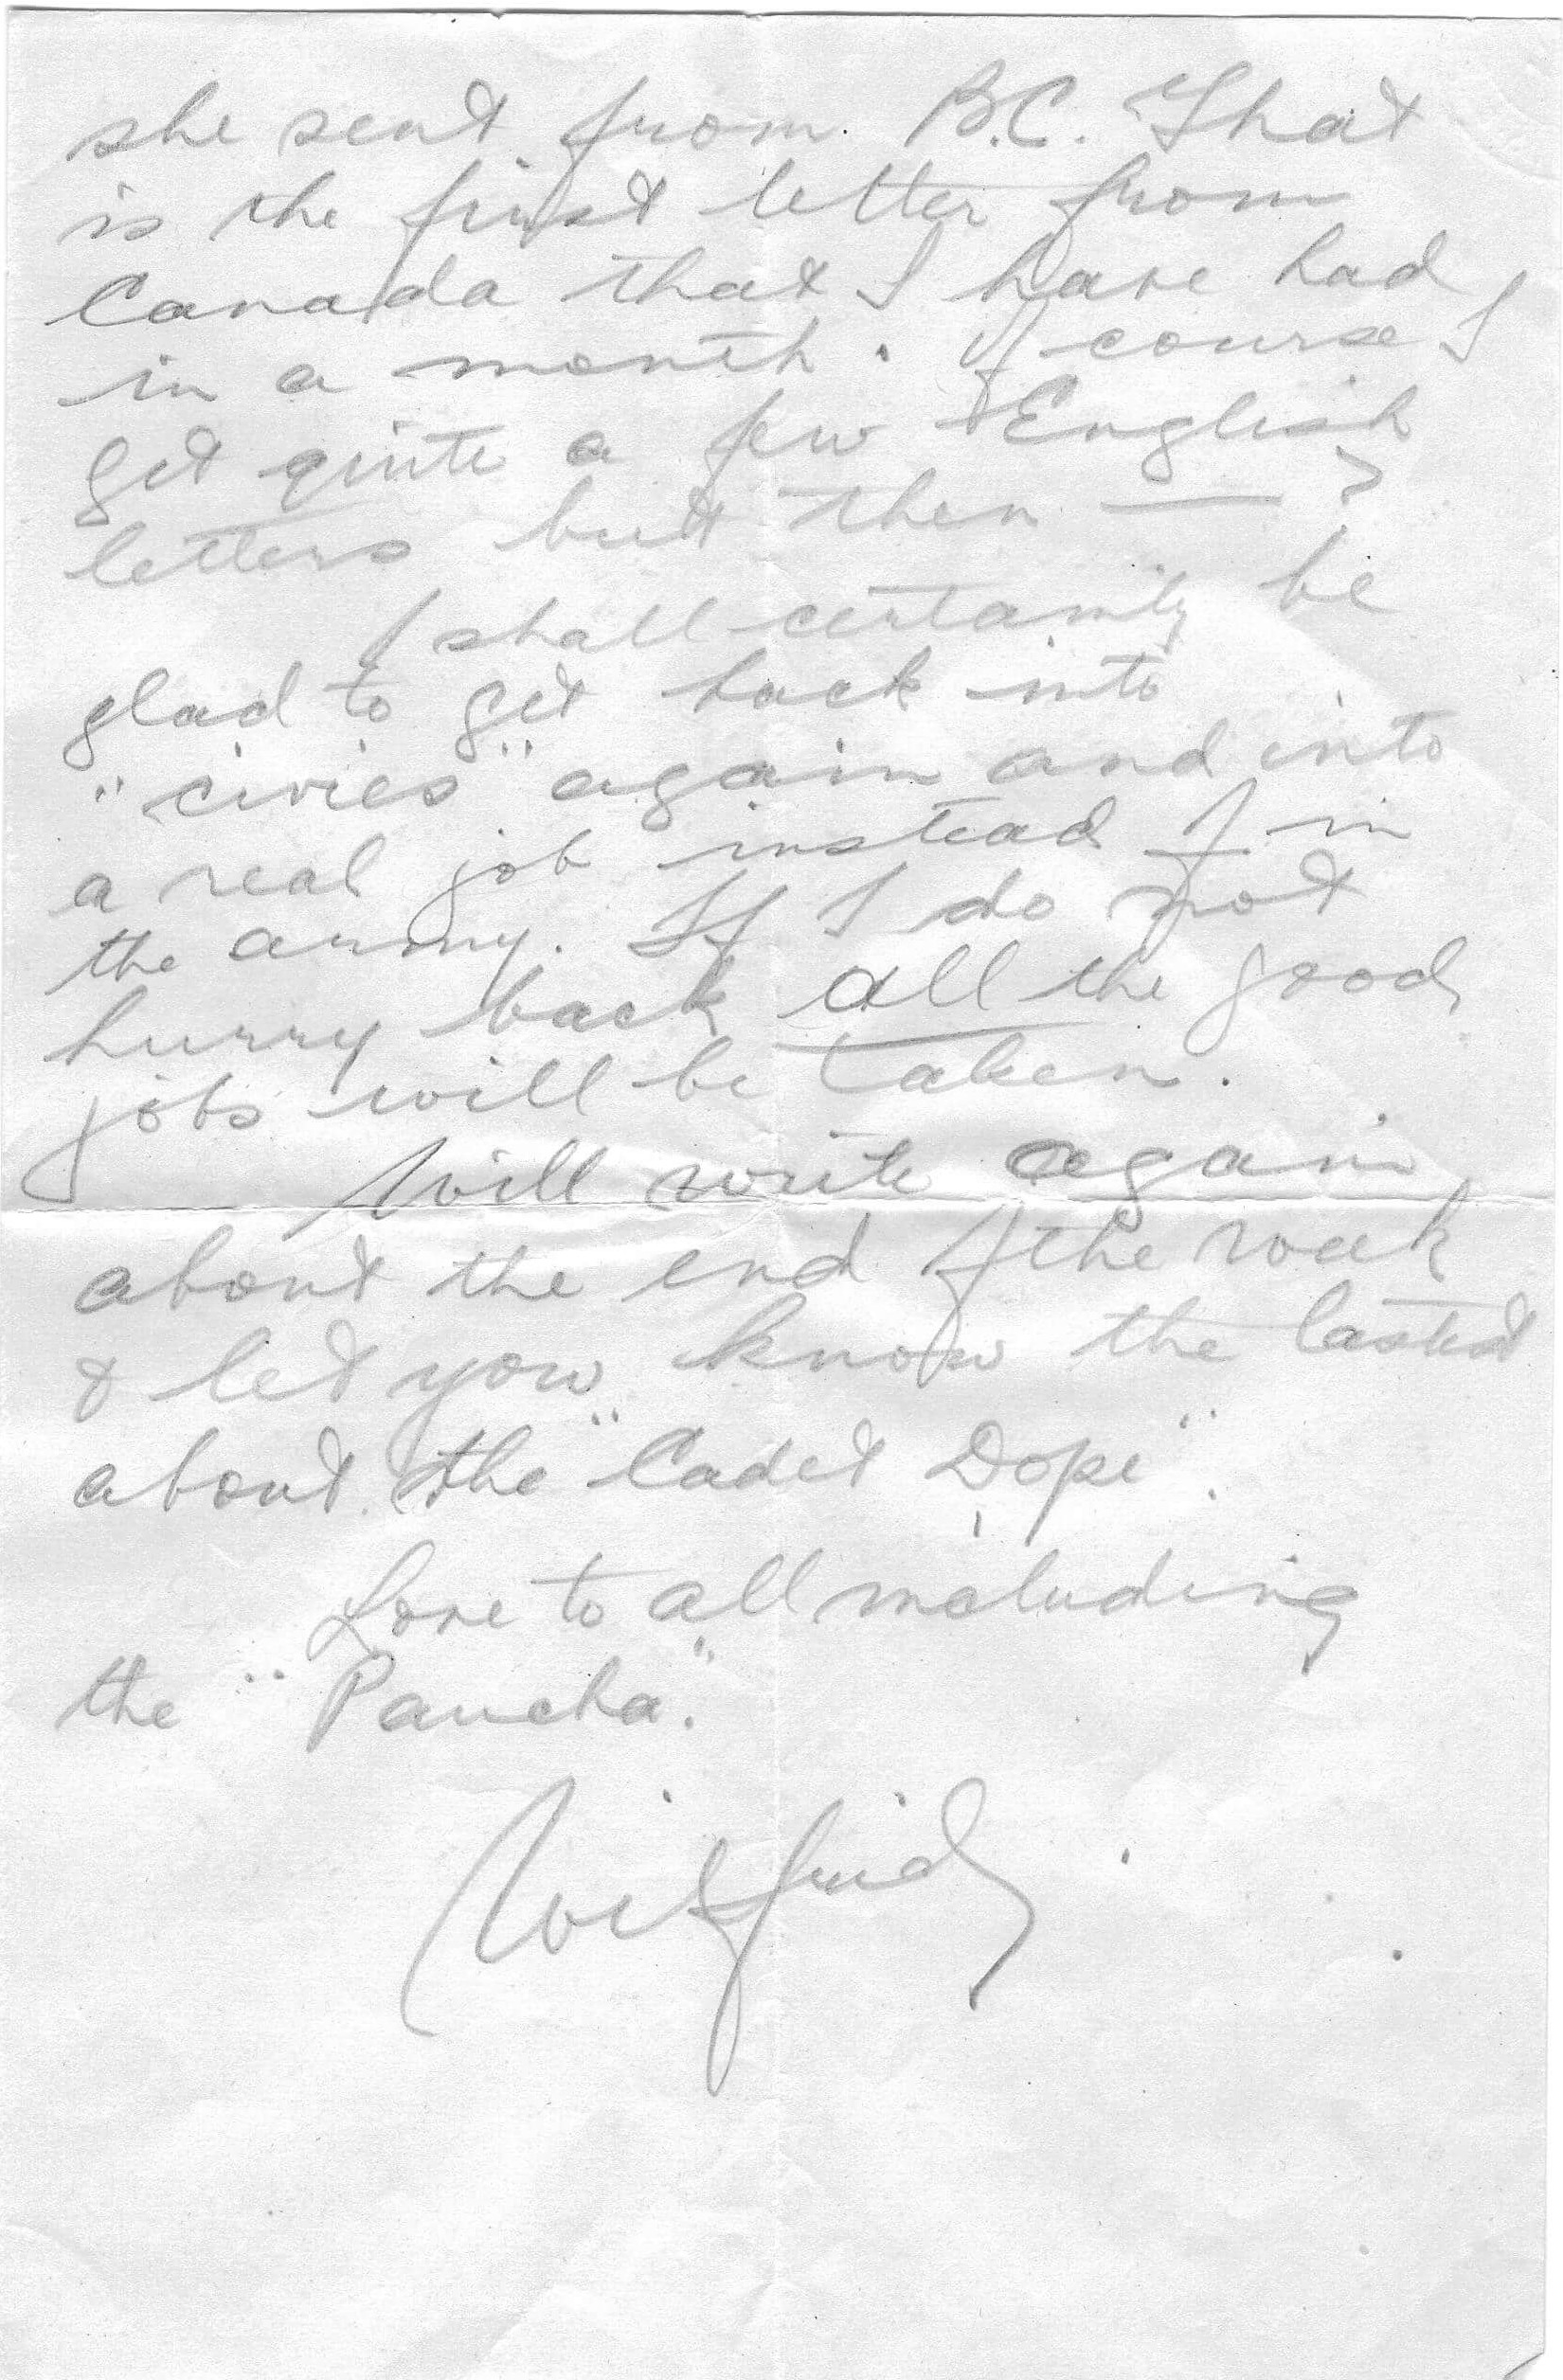 she sent from B.C. That
is the first letter from
Canada that I have had
in a month. Of course I
get quite a few English
letters but then — ?
I shall certainly be
glad to get back into
"civies" again and into
a real job instead of in
the army. If I do not
hurry back all the good
jobs will be taken.
Will write again
about the end of the week
& let you know the lastest
about the "Cadet Dope".
Love to all including
the "Paucha."
Wilfrid